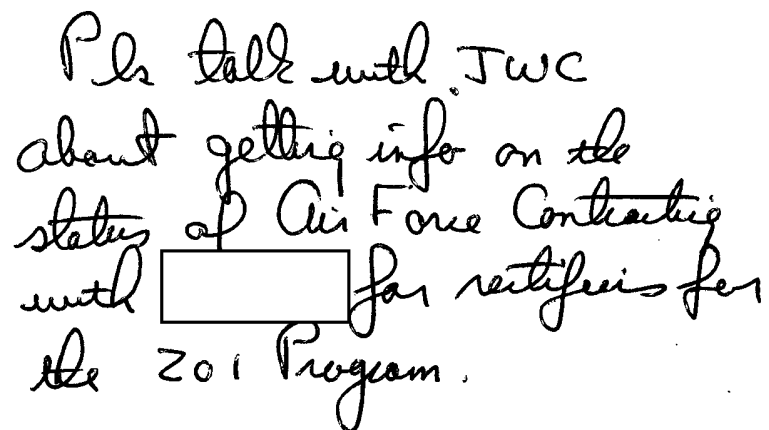 Pls talk with JWC
about getting info on the
status of Air Force Contracting
with for rectifiers for
the 201 Program.